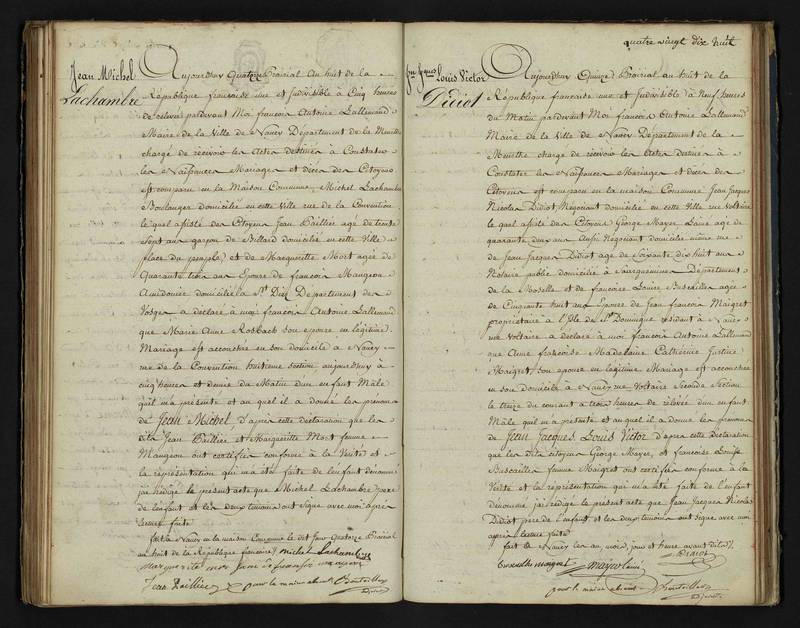 Jean Michel
Lachambre
Aujourdhuy Quatorze Prairial An huit de la
République francaise une et Indivisible à Cinq heures
de relevée pardevant Moi francois Antoine Lallemand
Maire de la Ville de Nancy Département de la Meurthe
chargé de recevoir les Actes Destinés à Constater
les Naissances Mariages et décès des Citoyens
est comparu en la Maison Commune, Michel Lachambre
Boulanger domicilié en cette Ville rue de la Convention
lequel assisté des Citoyens Jean Paillier agé de trente
sept ans garçon de Billard domicilié en cette Ville
place du peuple, et de Marguerite Mort agée de
Quarante trois ans Epouse de francois Mangeon
Amidonier domiciliée à St Diez Département des
Vosges a déclaré à moi francois Antoine Lallemand
que Marie Anne Rosbach son epouse en légitime
Mariage est accouchée en son domicile à Nancy
rue de la Convention huitieme section, aujourdhuy à
cinq heures et demie du Matin d'un enfant Mâle
qu'il m'a présenté et auquel il a donné les prénoms
de Jean Michel, D'après cette déclaration que les
dits Jean Paillier et Marguerite Mort femme
Mangeon ont certifiée conforme à la Vérité et
la représentation qui m'a été faite de l'enfant dénommé
jai rédigé le présent acte que Michel Lachambre pere
de l'enfant et les deux temoins ont signé avec moi après
lecture faite
fait à Nancy en la maison Commune le dit jour Quatorze Prairial
an huit de la République francaise. michel Lachambre
marguerite mor fame de fransoi manjon
Jean Paillier pour le maire absent
Adjoint
quatre vingt dix huit
Jn Jques Louis Victor
Didiot
Aujourdhuy Quinze Prairial an huit de la
République francaise une et Indivisible à Neuf heures
du Matin pardevant Moi francois Antoine Lallemand
Maire de la Ville de Nancy Département de la
Meurthe chargé de recevoir les Actes Destinés à
Constater les Naissances Mariages et décès des
Citoyens est comparu en la maison Commune Jean Jacques
Nicolas Didiot, Négociant domicilié en cette Ville rue Voltaire
lequel assisté des Citoyens George Mayer Lainé agé de
quarante deux ans Aussi Négociant domicilié même rue
de Jean Jacques Didiot agé de Soixante dix huit ans
Notaire public domicilié à Sarguemine Département
de la Moselle et de francoise Louise Bescailler agée
de Cinquante huit ans Epouse de Jean francois Maigret
propriétaire à l'Isle de St Domingue résidant à Nancy
rue Voltaire a déclaré à moi francois Antoine Lallemand
que Anne francoise Madelaine Catherine Justine
Maigret, son epouse en légitime Mariage est accouchée
en son domicile à Nancy rue Voltaire Seconde Section
le treize du courant à trois heures de relevée d'un enfant
Mâle qu'il m'a présenté et auquel il a donné les prénoms
de Jean Jacques Louis Victor d'après cette déclaration
que les Dits citoyens George Mayer, et francoise Louise
Bescailler femme Maigret ont certifiée conforme à la
Vérité et la représentation qui m'a été faite de l'enfant
dénommé jai rédigé le présent acte que Jean Jacques Nicolas
Didiot pere de l'enfant, et les deux temoins ont signé avec moi
après Lecture faite
fait à Nancy les an mois, jour et heure avant dits
Didiot
maigret mayer lainé
pour le maire absent
Adjoint